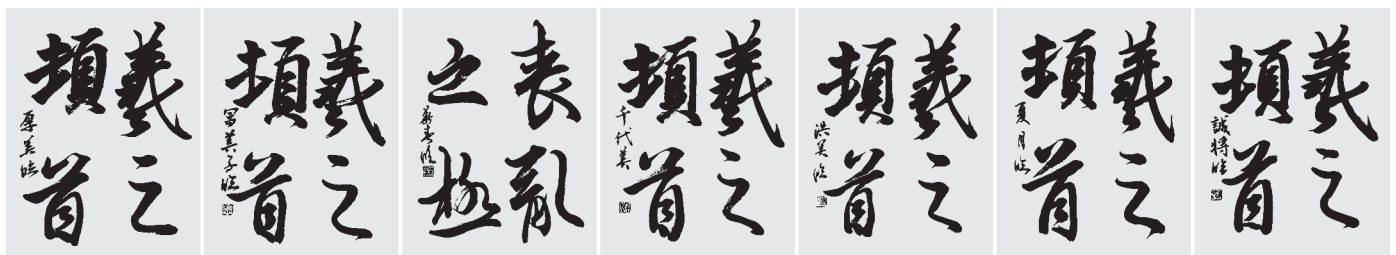 羲之
頓首
厚美臨
羲之
頓首
冨美子臨
喪亂
之極
羲之
頓首
千代美
羲之
頓首
羲之
頓首
夏月臨
羲之
頓首
誠将臨